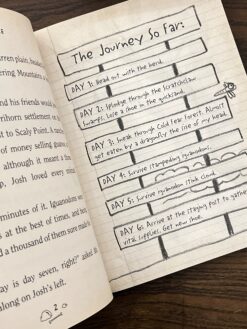 arren plain, beside
ering Mountains, a
nd his friends would a
erhorn settlement o
t to Scaly Point. A
of money selling guano,
although it meant a
p, Josh loved every
minutes of it. Iguanodon
s at the best of times, and
d a thousand of them sure made
ay is day seven, right?" asked
along on Josh's left.
2
The Journey So Far:
DAY 1: Head out with the herd.
DAY 2: Splodge through the Scratchclaw
Swamps. Lose a shoe in the quicksand.
DAY 3: Sneak through Cold Tear Forest. Almost
get eaten by a dragonfly the size of my head.
DAY 4: Survive stampeding gryanodon.
DAY 5: Survive gryanodon stink cloud.
DAY 6: Arrive at the staging post to gather
vital supplies. Get new shoe.